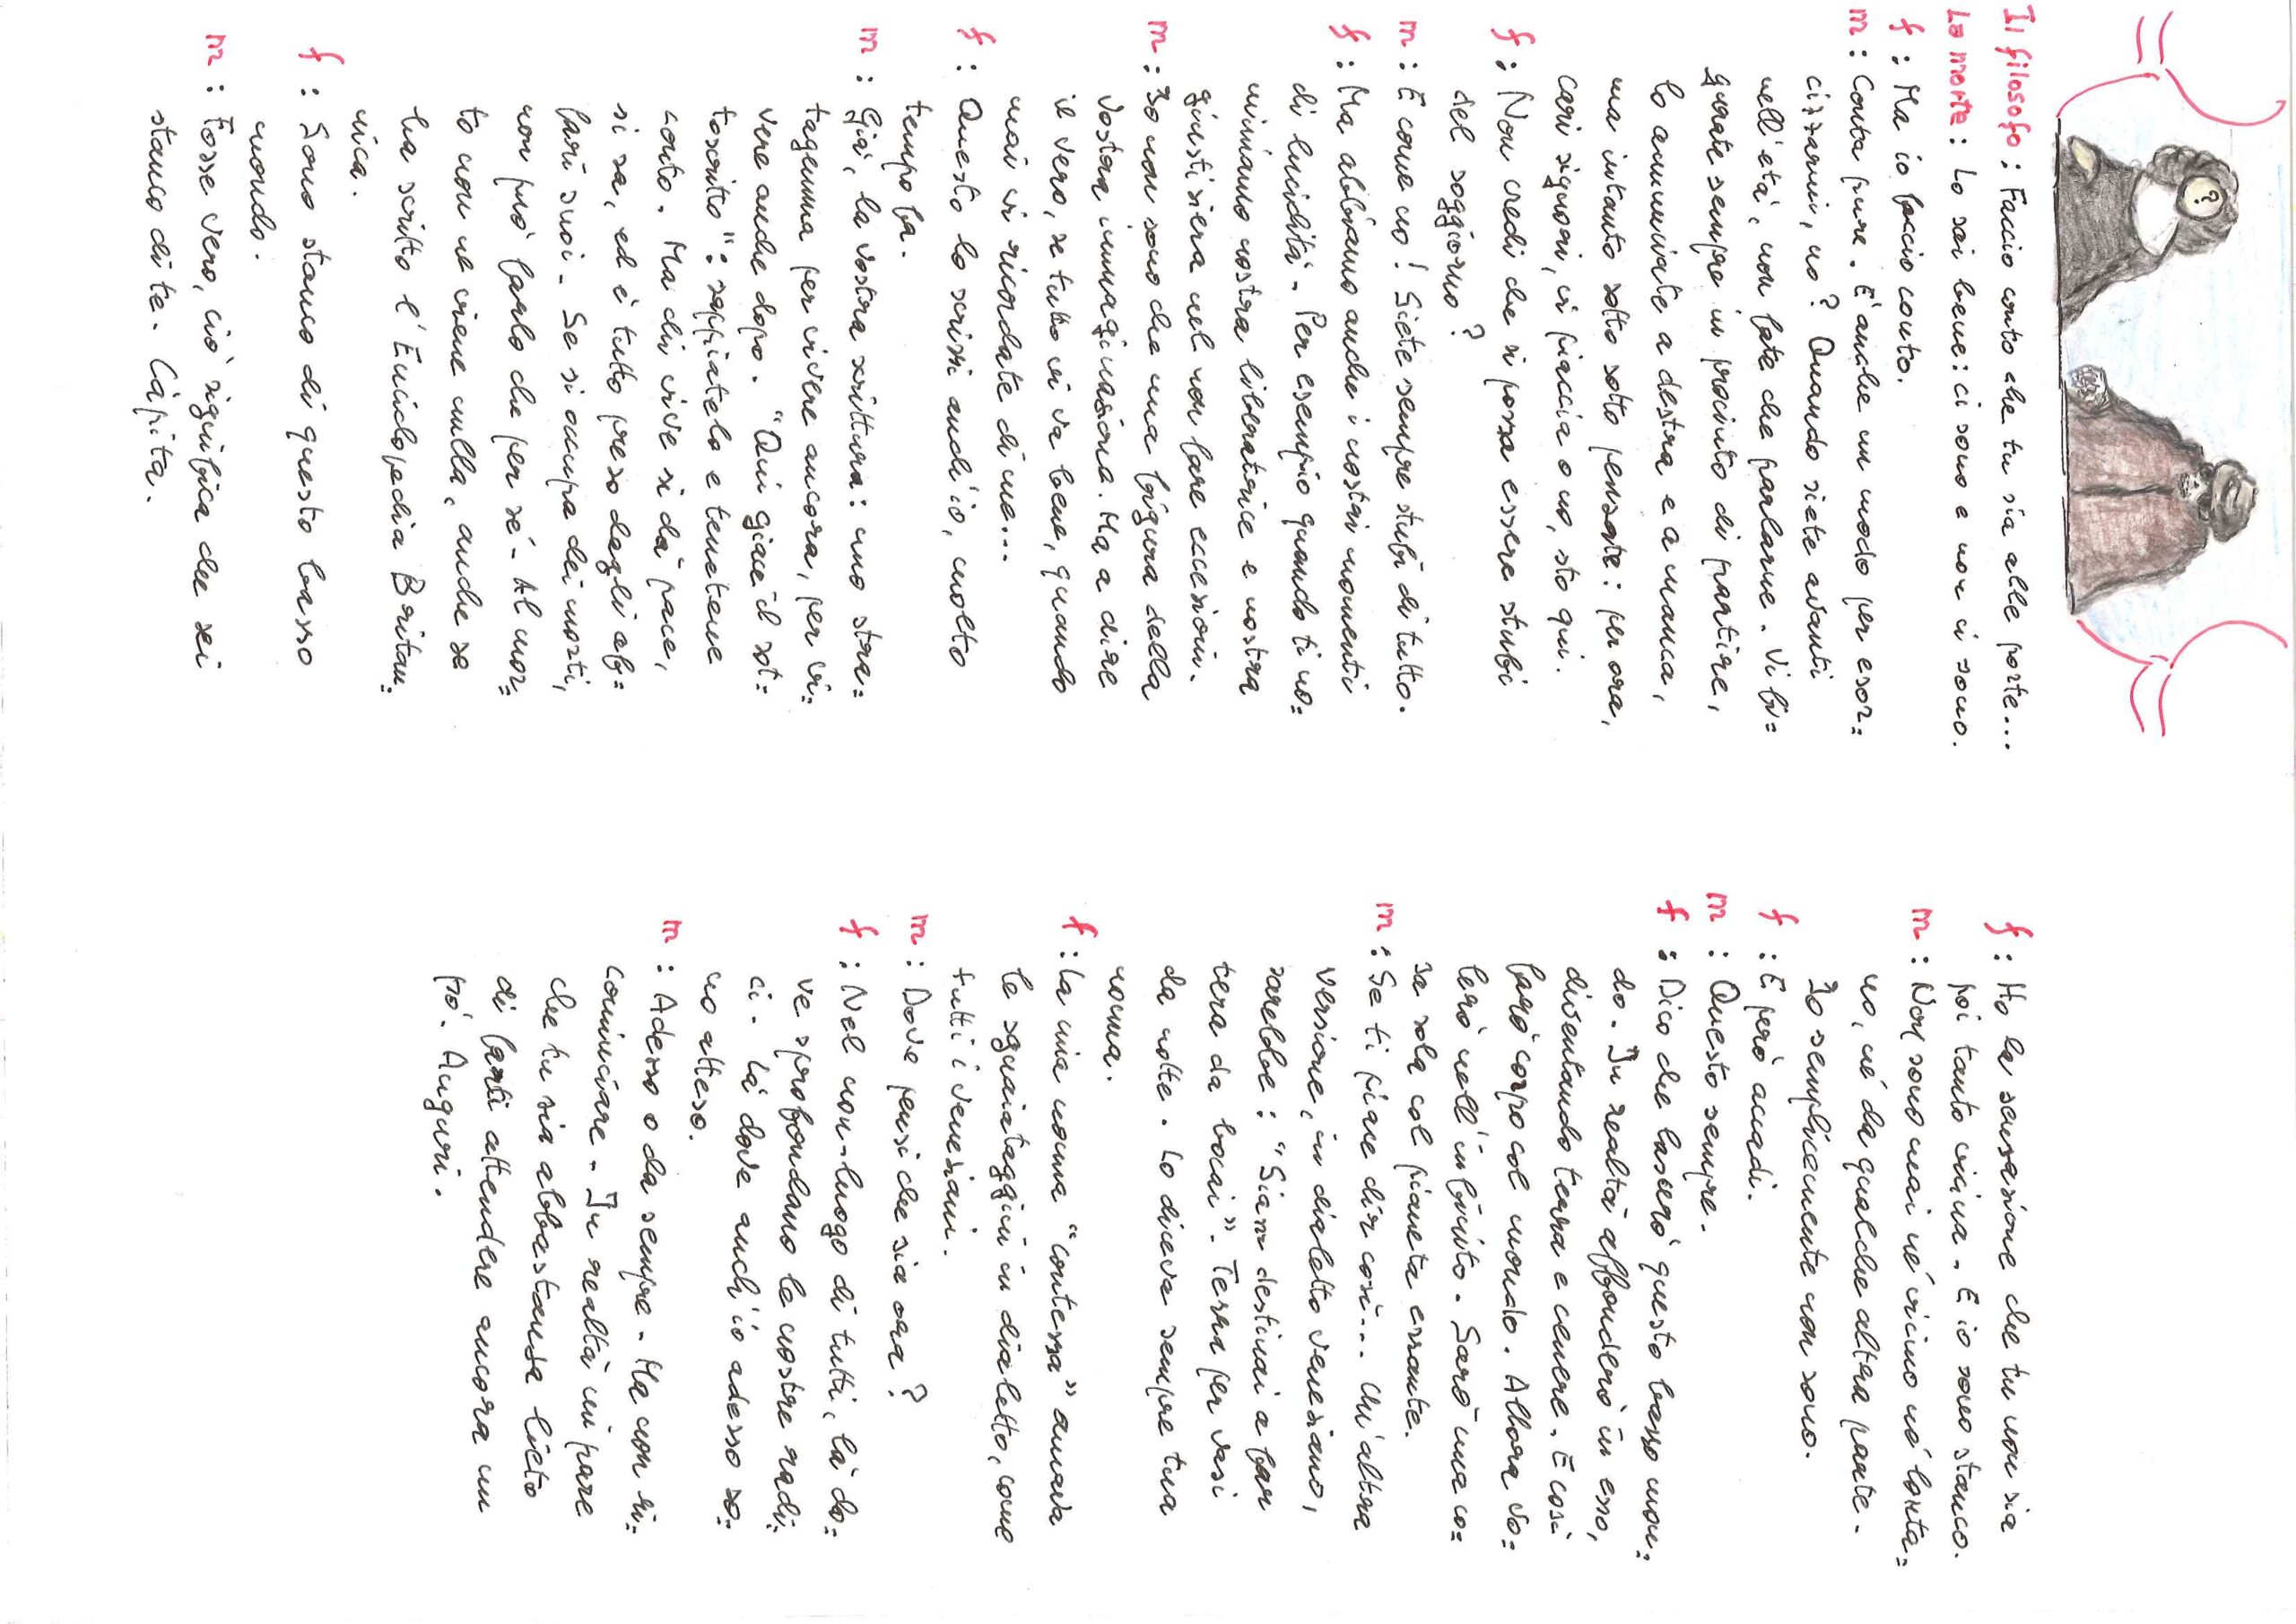 Il filosofo: Faccio conto che tu sia alle porte...
La morte: Lo sai bene: ci sono e non ci sono.
f: Ma io faccio conto.
m: Conta pure. È anche un modo per esor=
cizzarmi, no? Quando siete avanti
nell'età, non fate che parlarne. Vi fi=
gurate sempre in procinto di partire,
lo annunciate a destra e a manca,
ma intanto sotto sotto pensate: per ora,
cari signori, vi piaccia o no, sto qui.
f: Non credi che si possa essere stufi
del soggiorno?
m: E come no! Siete sempre stufi di tutto.
f: Ma abbiamo anche i nostri momenti
di lucidità. Per esempio quando ti no=
miniamo nostra liberatrice e nostra
giustiziera nel non fare eccezioni.
m: Io non sono che una figura della
vostra immaginazione. Ma a dire
il vero, se tutto vi va bene, quando
mai vi ricordate di me...
f: Questo lo scrissi anch'io, molto
tempo fa.
m: Già, la vostra scrittura: uno stra=
tagemma per vivere ancora, per vi=
vere anche dopo. "Qui giace il sot=
toscritto": sappiatelo e tenetene
conto. Ma chi vive si dà pace,
si sa, ed è tutto preso dagli af=
fari suoi. Se si occupa dei morti,
non può farlo che per sé. Al mor=
to non ne viene nulla, anche se
ha scritto l'Enciclopedia Britan=
nica.
f: Sono stanco di questo basso
mondo.
m: Fosse vero, ciò significa che sei
stanco di te. Càpita.
f: Ho la sensazione che tu non sia
poi tanto vicina. E io sono stanco.
m: Non sono mai né vicino né lonta=
no, né da qualche altra parte.
Io semplicemente non sono.
f: E però accadi.
m: Questo sempre.
f: Dico che lascerò questo basso mon=
do. In realtà affonderò in esso,
diventando terra e cenere. E così
farò corpo col mondo. Allora vo=
lerò nell'infinito. Sarò una co=
sa sola col pianeta errante.
m: Se ti piace dir così... Un'altra
versione, in dialetto veneziano,
sarebbe: "Siamo destinai a far
tera da bocai". Terra per vasi
da notte. Lo diceva sempre tua
nonna.
f: La mia nonna "contessa" amava
le sguaiataggini in dialetto, come
tutti i veneziani.
m: Dove pensi che sia ora?
f: Nel non-luogo di tutti, là do=
ve sprofondano le nostre radi=
ci. Là dove anch'io adesso so=
no atteso.
m: Adesso o da sempre. Ma non ri=
cominciare. In realtà mi pare
che tu sia abbastanza lieto
di farti attendere ancora un
po'. Auguri.